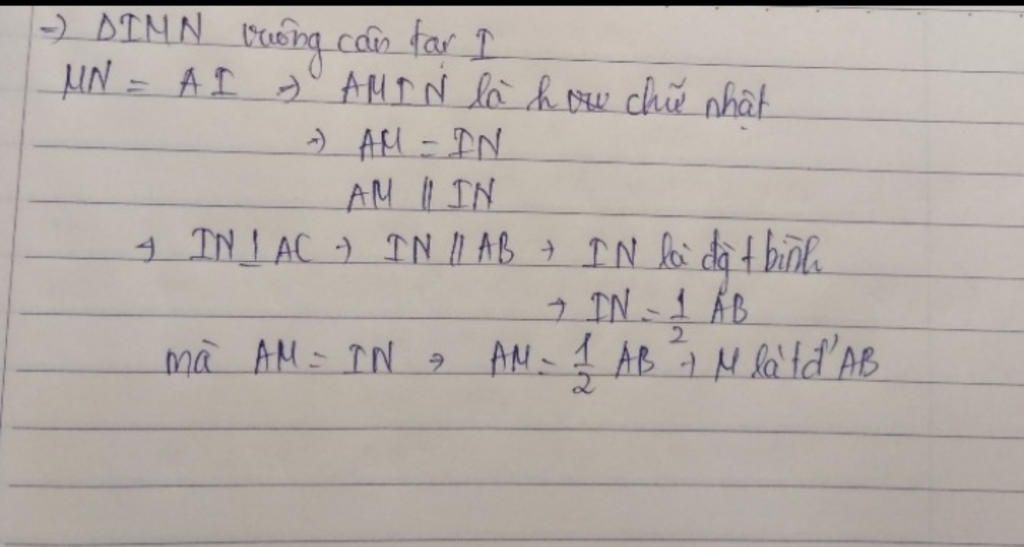 => ΔIMN vuông cân tại I
MN = AI => AMIN là hcn chữ nhật
=> AM = IN
AM // IN
→ IN ⊥ AC → IN // AB → IN là đg t bình
→ IN = 1/2 AB
mà AM = IN → AM = 1/2 AB → M là tđ' AB